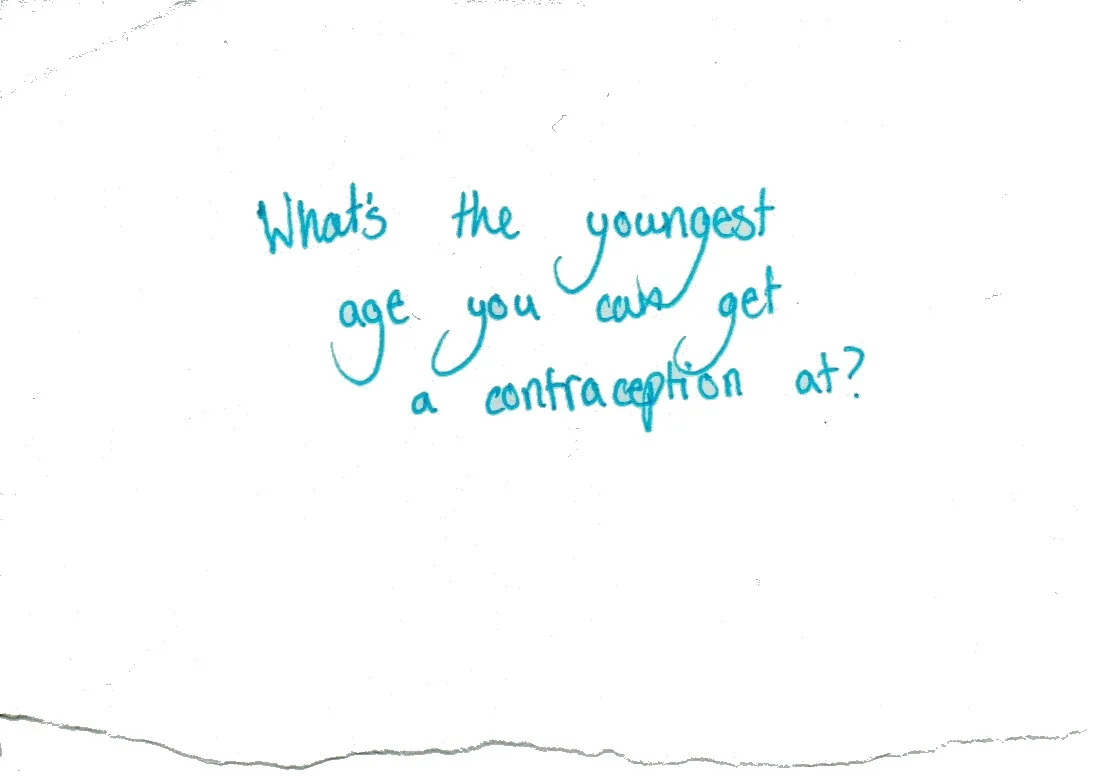 What's the youngest
age you can get
a contraception at?